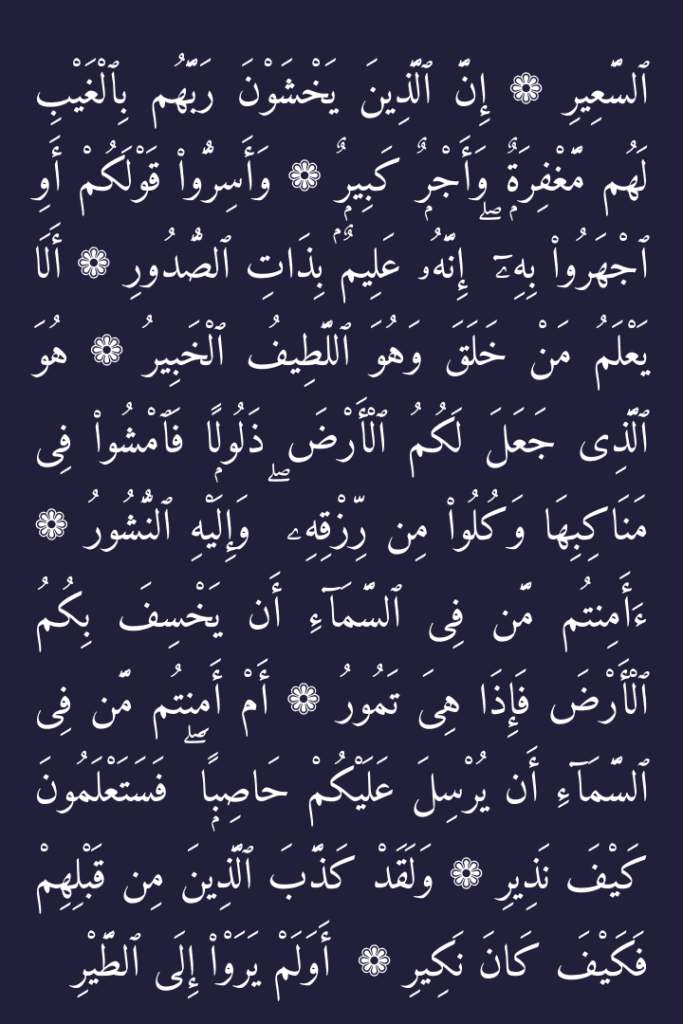 ٱلسَّعِيرِ ۞ إِنَّ ٱلَّذِينَ يَخْشَوْنَ رَبَّهُم بِٱلْغَيْبِ
لَهُم مَّغْفِرَةٌۭ وَأَجْرٌۭ كَبِيرٌۭ ۞ وَأَسِرُّوا۟ قَوْلَكُمْ أَوِ
ٱجْهَرُوا۟ بِهِۦٓ ۖ إِنَّهُۥ عَلِيمٌۢ بِذَاتِ ٱلصُّدُورِ ۞ أَلَا
يَعْلَمُ مَنْ خَلَقَ وَهُوَ ٱللَّطِيفُ ٱلْخَبِيرُ ۞ هُوَ
ٱلَّذِى جَعَلَ لَكُمُ ٱلْأَرْضَ ذَلُولًۭا فَٱمْشُوا۟ فِى
مَنَاكِبِهَا وَكُلُوا۟ مِن رِّزْقِهِۦ ۖ وَإِلَيْهِ ٱلنُّشُورُ ۞
ءَأَمِنتُم مَّن فِى ٱلسَّمَآءِ أَن يَخْسِفَ بِكُمُ
ٱلْأَرْضَ فَإِذَا هِىَ تَمُورُ ۞ أَمْ أَمِنتُم مَّن فِى
ٱلسَّمَآءِ أَن يُرْسِلَ عَلَيْكُمْ حَاصِبًۭا ۖ فَسَتَعْلَمُونَ
كَيْفَ نَذِيرِ ۞ وَلَقَدْ كَذَّبَ ٱلَّذِينَ مِن قَبْلِهِمْ
فَكَيْفَ كَانَ نَكِيرِ ۞ أَوَلَمْ يَرَوْا۟ إِلَى ٱلطَّيْرِ